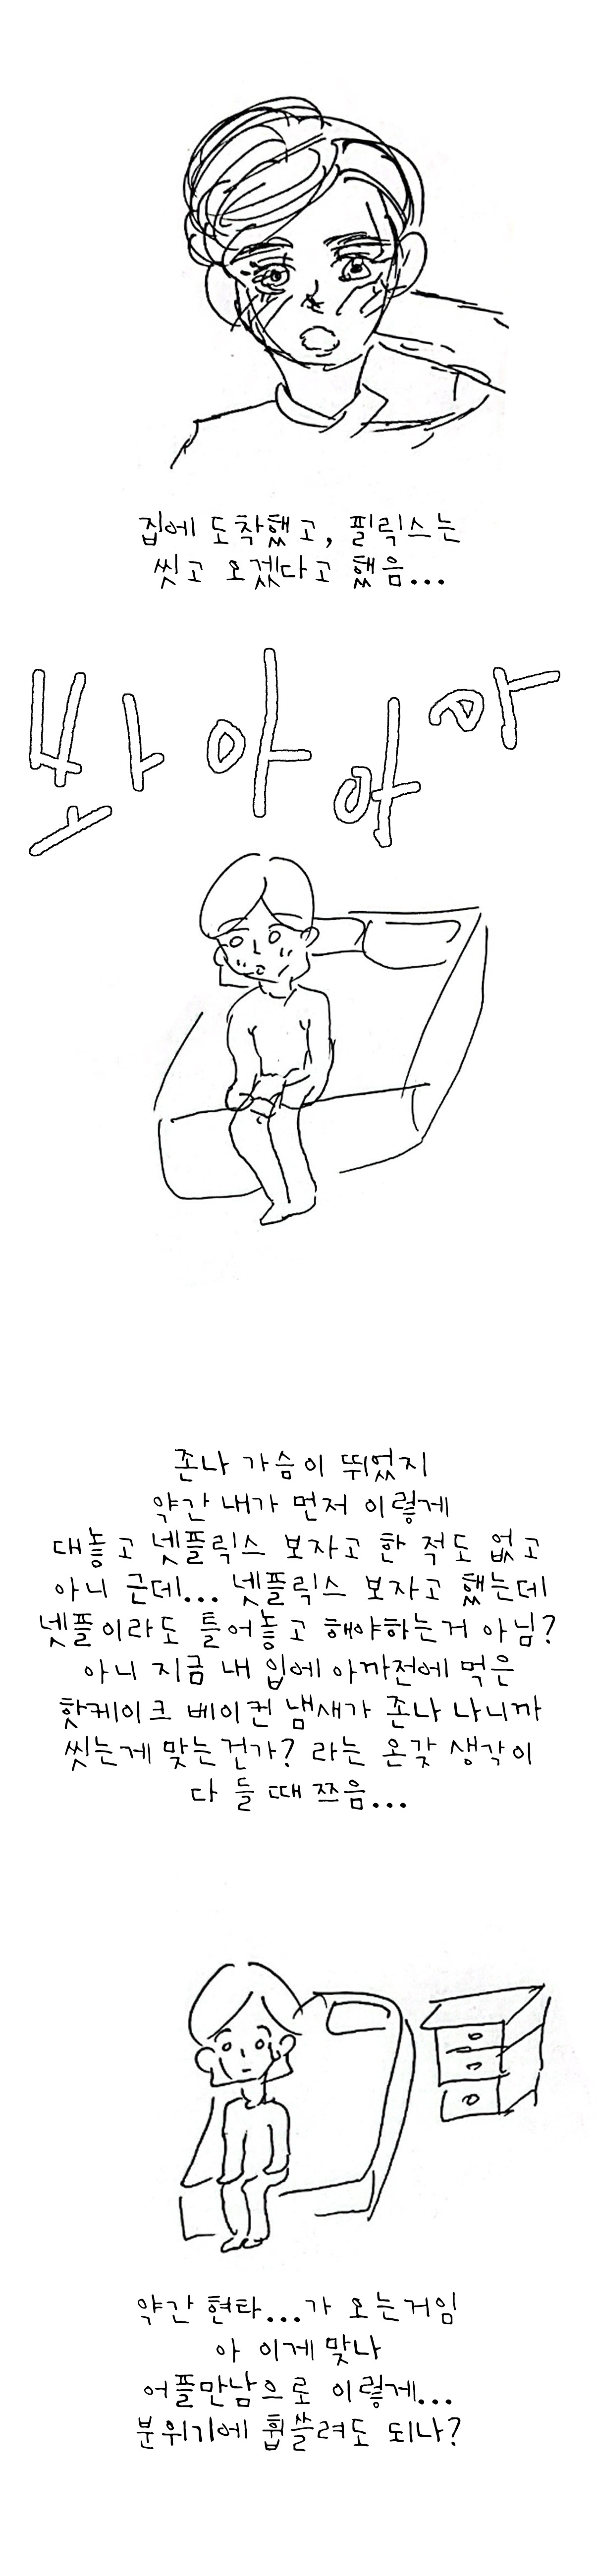 집에 도착했고, 필릭스는
씻고 오겠다고 했음...
봐아아아
존나 가슴이 뛰었지
약간 내가 먼저 이렇게
대놓고 넷플릭스 보자고 한 적도 없고
아니 근데... 넷플릭스 보자고 했는데
넷플이라도 틀어놓고 해야하는거 아님?
아니 지금 내 입에 아까전에 먹은
핫케이크 베이컨 냄새가 존나 나니까
씻는게 맞는건가? 라는 온갖 생각이
다 들 때 쯔음...
약간 현타...가 오는거임
아 이게 맞나
어플만남으로 이렇게...
분위기에 휩쓸려도 되나?